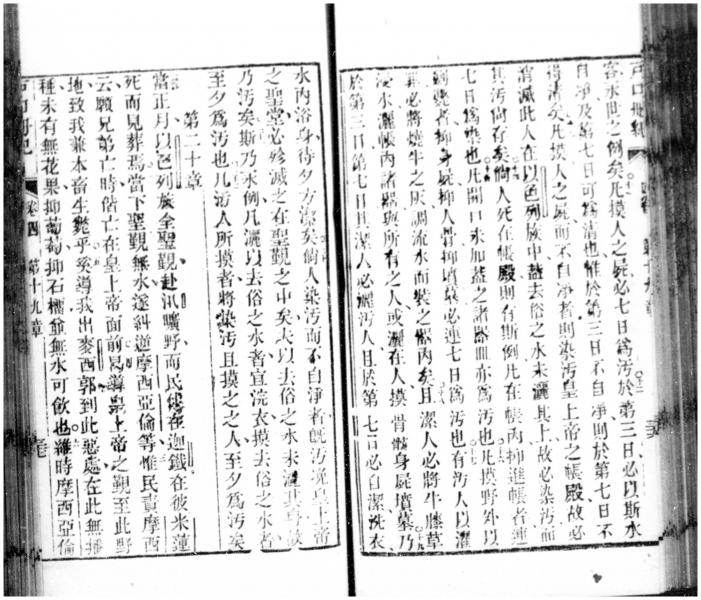 戶口册紀
容永世之例矣凡摸人之屍必七日爲汚於第三日必以斯水
自淨及第七日可爲清也惟於第三日不自淨則於第七日不
得清矣凡摸人之屍而不自淨者則染汚皇上帝之帳殿故必
消滅此人在以色列族中蓋去俗之水未灑其上故必染汚而
其汚尚存矣倘人死在帳殿則有斯例凡在帳內抑進帳者連
七日爲汚也凡開口未加蓋之諸器皿亦爲汚也凡摸野外以
劍斃者抑身屍抑人骨抑墳墓必連七日爲汚也有汚人以濯
罪必將燒牛之灰調流水而裝之器內矣且潔人必將牛藤草
浸水灑帳內諸器與所有之人或灑在人摸骨骸身屍墳墓乃
於第三日第七日其潔人必灑汚人且於第七日必自潔洗衣
水內浴身待夕方潔矣倘人染汚而不自淨者旣汚穢皇上帝
之聖堂必殄滅之在聖覲之中矣夫以去俗之水未灑其身故
乃汚矣斯乃永例凡灑以去俗之水者宜浣衣摸去俗之水者
至夕爲汚也凡汚人所摸者將染汚且摸之之人至夕爲汚矣
第二十章
當正月以色列族全聖覲赴汛曠野而民住在迦鐵在彼米蓮
死而見葬焉當下聖覲無水遂糾逆摩西亞倫等惟民責摩西
云願兄弟亡時偕亡在皇上帝面前曷導皇上帝之覲至此野
地致我兼本畜生斃乎奚導我出麥西郭到此惡處在此無播
種未有無花果抑葡萄抑石榴並無水可飲也維時摩西亞倫
戶口册紀 卷四 第十九章